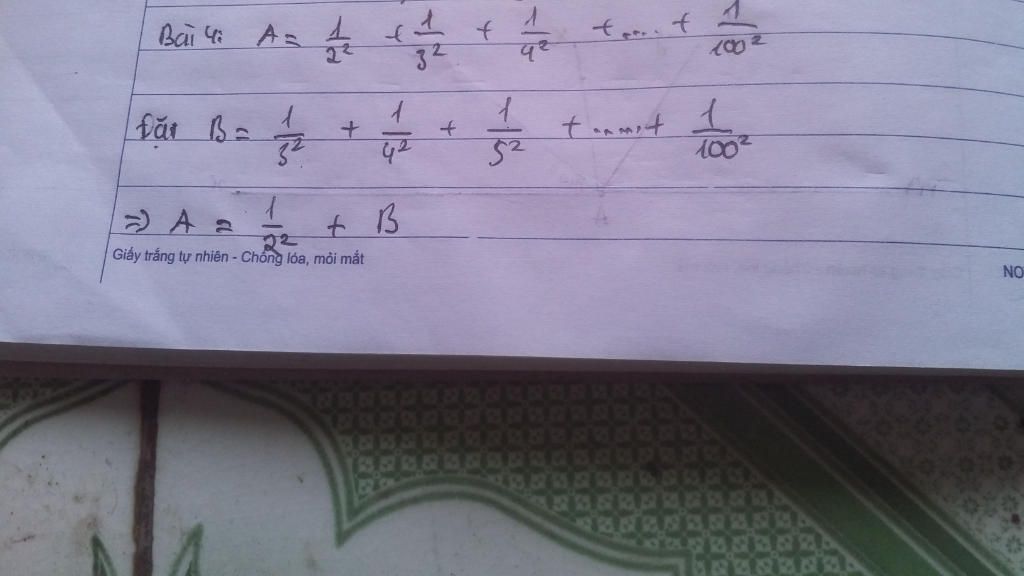 Bài 4: A = 1/2² + 1/3² + 1/4² + .... + 1/100²
Đặt B = 1/3² + 1/4² + 1/5² + ..... + 1/100²
=> A = 1/2² + B
Giấy trắng tự nhiên - Chống lóa, mỏi mắt
NO